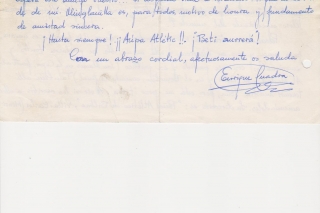 de mi es, para todos motivo de honra y fundamento
de amistad sincera.
¡Hasta siempre! ¡¡Aúpa Atlétic!!. ¡Beti aurrera!
Con un abrazo cordial, afectuosamente os saluda
Enrique